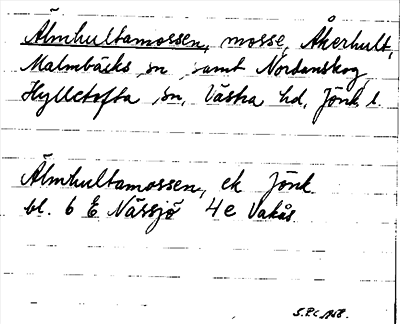 Älmhultamossen, mosse, Åkerhult,
Malmbäcks sn samt Nordanskog,
Hylletofta sn, Västra hd, Jönk. l.
Älmhultamossen, ek Jönk.
bl. 6 E Nässjö 4e Vakås